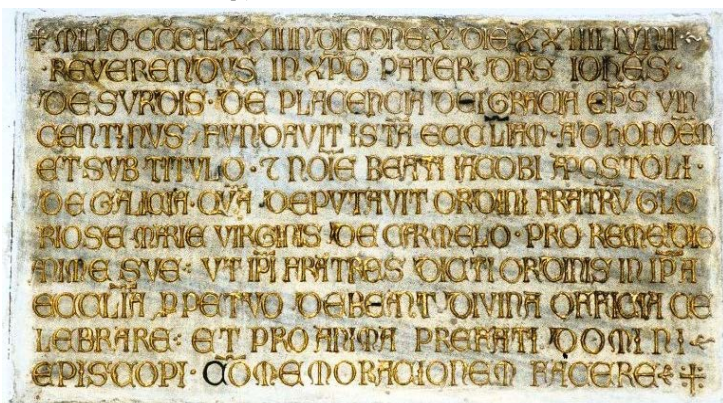 ✝ MILLO·CCC·LXXII INDICIONE·X·DIE·XXIIII IUNII·
·REVERENDVS IN XP̄O PATER DN̄S IOH̄ES·
DE·SVRDIS·DE PLACENCIA DEI GRACIA EP̄S VIN
CENTINVS·FVNDAVIT ISTĀ ECCLĪAM·AD HONOR̄EM
ET·SVB TITVLO·⁊ NOĪE BEATI IACOBI APOSTOLI·
DE GALICIA·QVĀ DEPVTAVIT ORDINI FRATRŪ GLO
RIOSE·MARIE VIRGINIS DE CARMELO·PRO REMEDIO
ANIME SVE: VT IP̄I FRATRES DICTI ORDINIS IN IP̄A
ECCLĪA PPETVO DEBEANT DIVINA OFFICIA CE
LEBRARE: ET PRO ANIMA PREFATI DOMINI
EPISCOPI·COMEMORACIONEM FACERE ✝